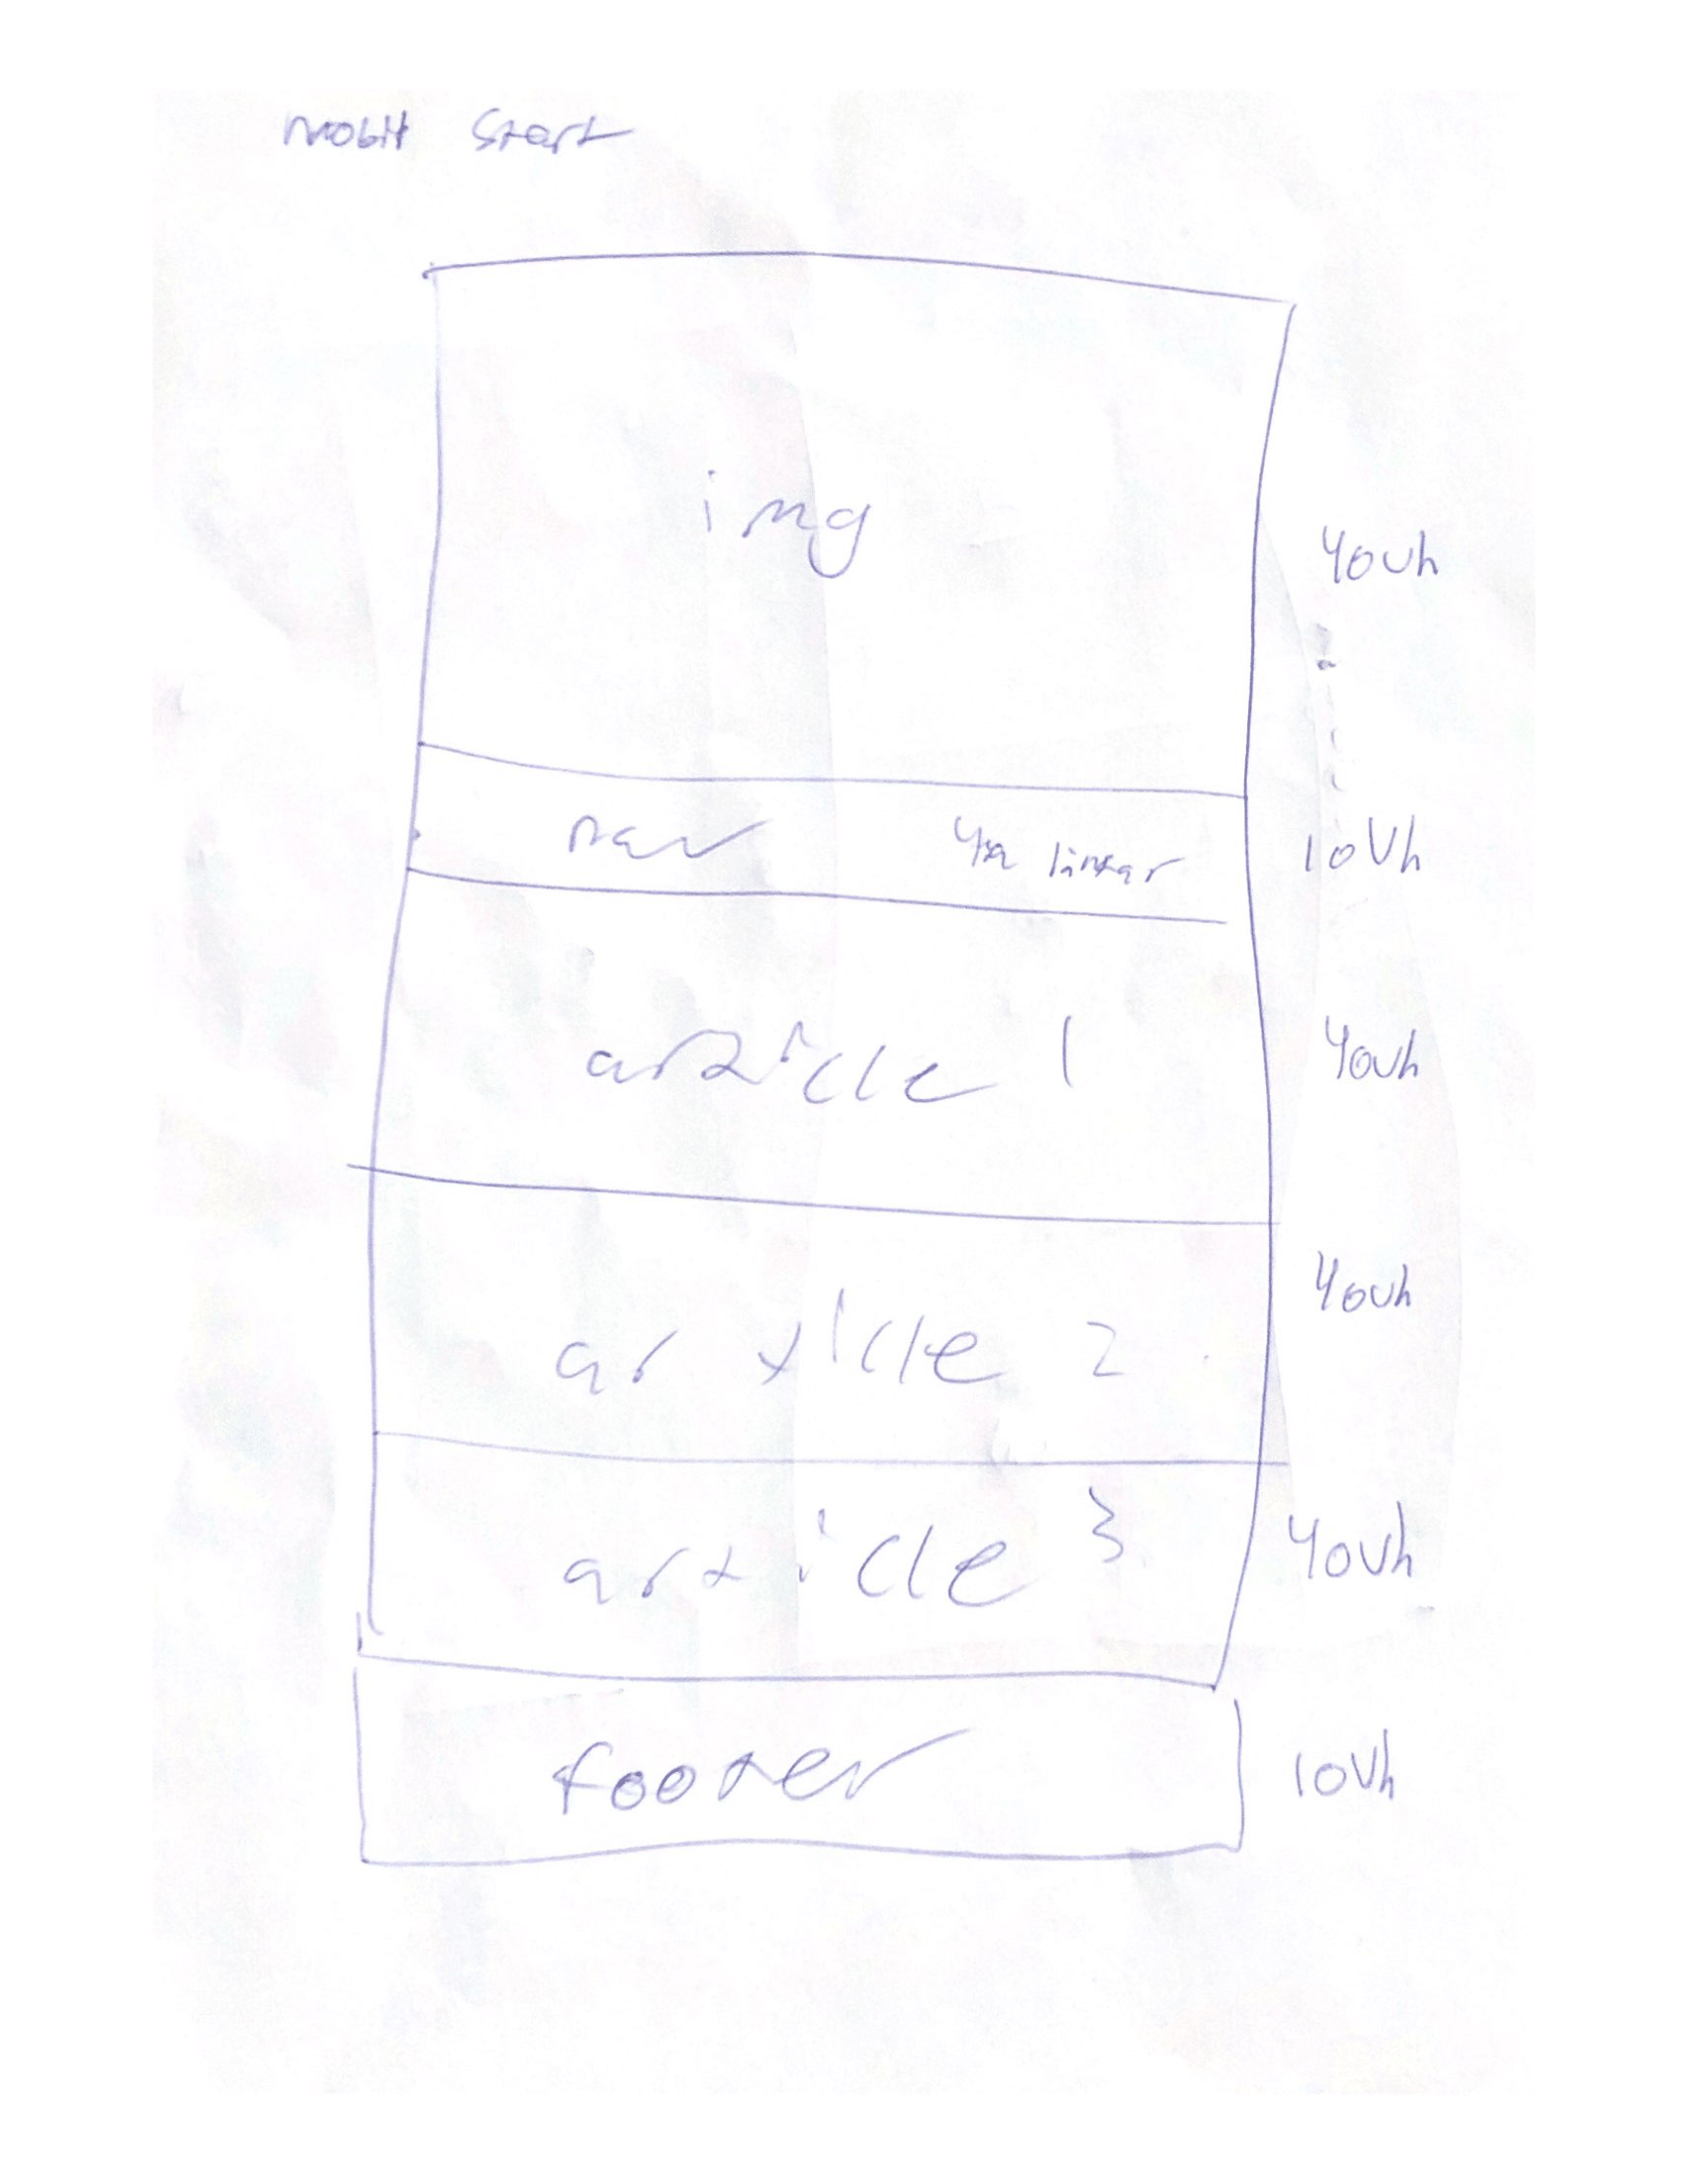 mobil start
img
40vh
nav 4x linear
10vh
article 1
40vh
article 2
40vh
article 3
40vh
footer
10vh